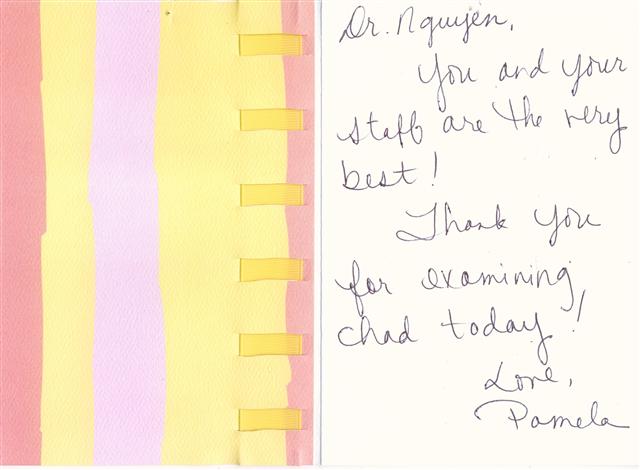 Dr. Nguyen,
You and your
staff are the very
best!
Thank you
for examining
Chad today!
Love,
Pamela